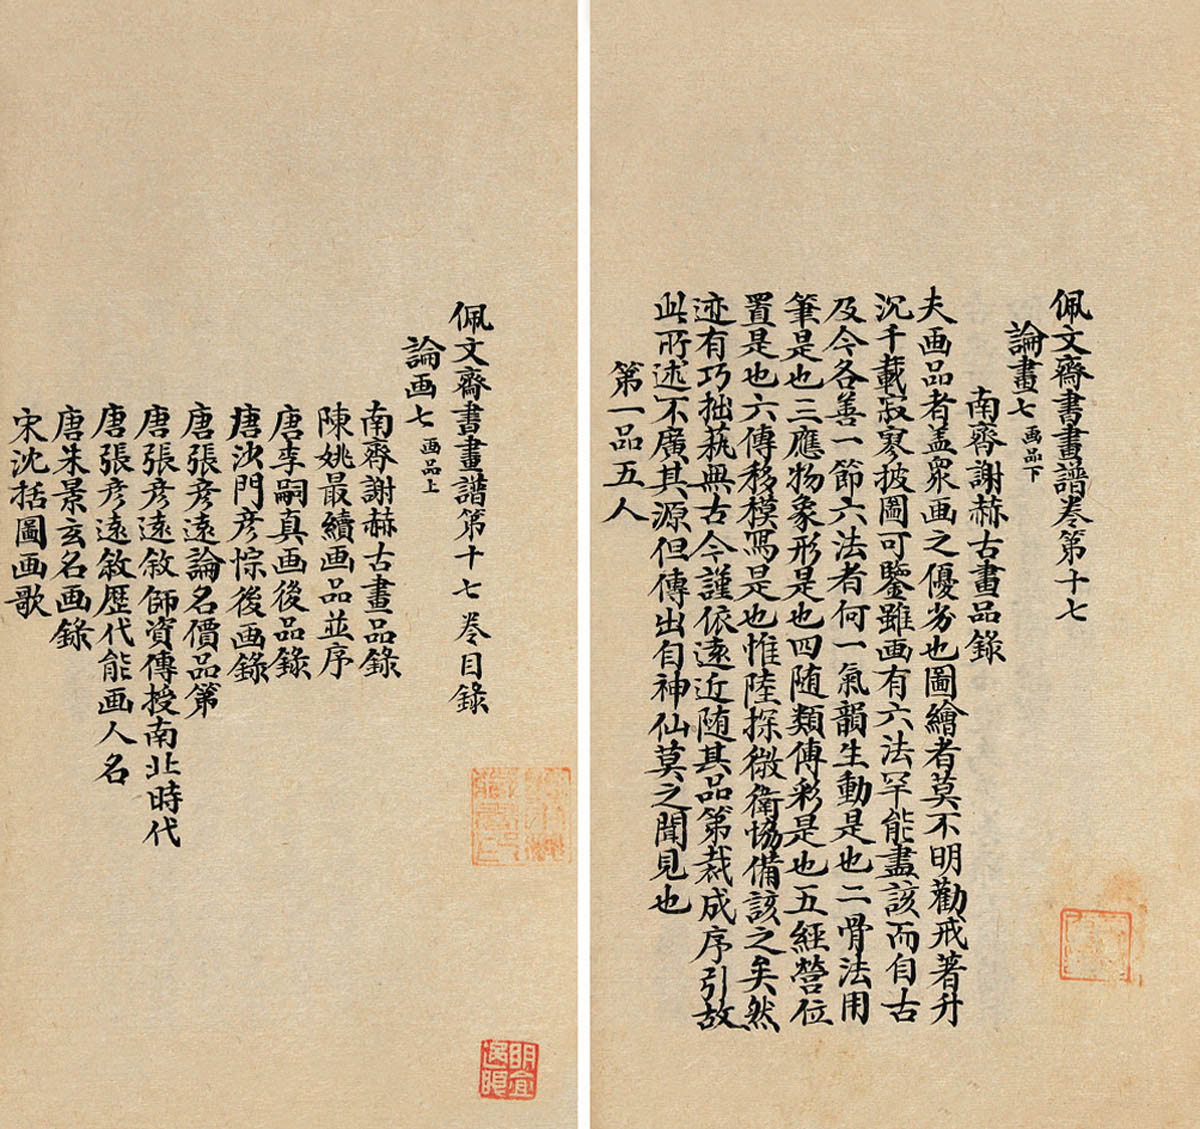 佩文齋書畫譜卷第十七
論畫七 画品下
南齊謝赫古畫品錄
夫画品者盖衆画之優劣也圖繪者莫不明勸戒著升
沉千載寂寥披圖可鑒雖画有六法罕能盡該而自古
及今各善一節六法者何一氣韻生動是也二骨法用
筆是也三應物象形是也四随類傳彩是也五經營位
置是也六傳移模寫是也惟陸探微衛協備該之矣然
迹有巧拙蓺無古今謹依遠近随其品第裁成序引故
此所述不廣其源但傳出自神仙莫之聞見也
第一品五人
佩文齋書畫譜第十七卷目錄
論画七 画品上
南齊謝赫古畫品錄
陳姚最續画品並序
唐李嗣真画後品錄
唐沙門彦悰後画錄
唐張彦遠論名價品第
唐張彦遠敘師資傳授南北時代
唐張彦遠敘歷代能画人名
唐朱景玄名画錄
宋沈括圖画歌